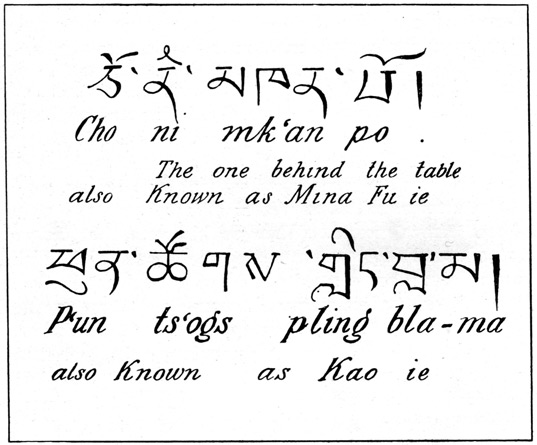 ཅོ་ནི་མཁན་པོ།
Cho ni mk‘an po .
The one behind the table
also Known as Mina Fu ie
ཕུན་ཚོགས་གླིང་བླ་མ།
P‘un ts‘ogs pling bla-ma
also Known as Kao ie